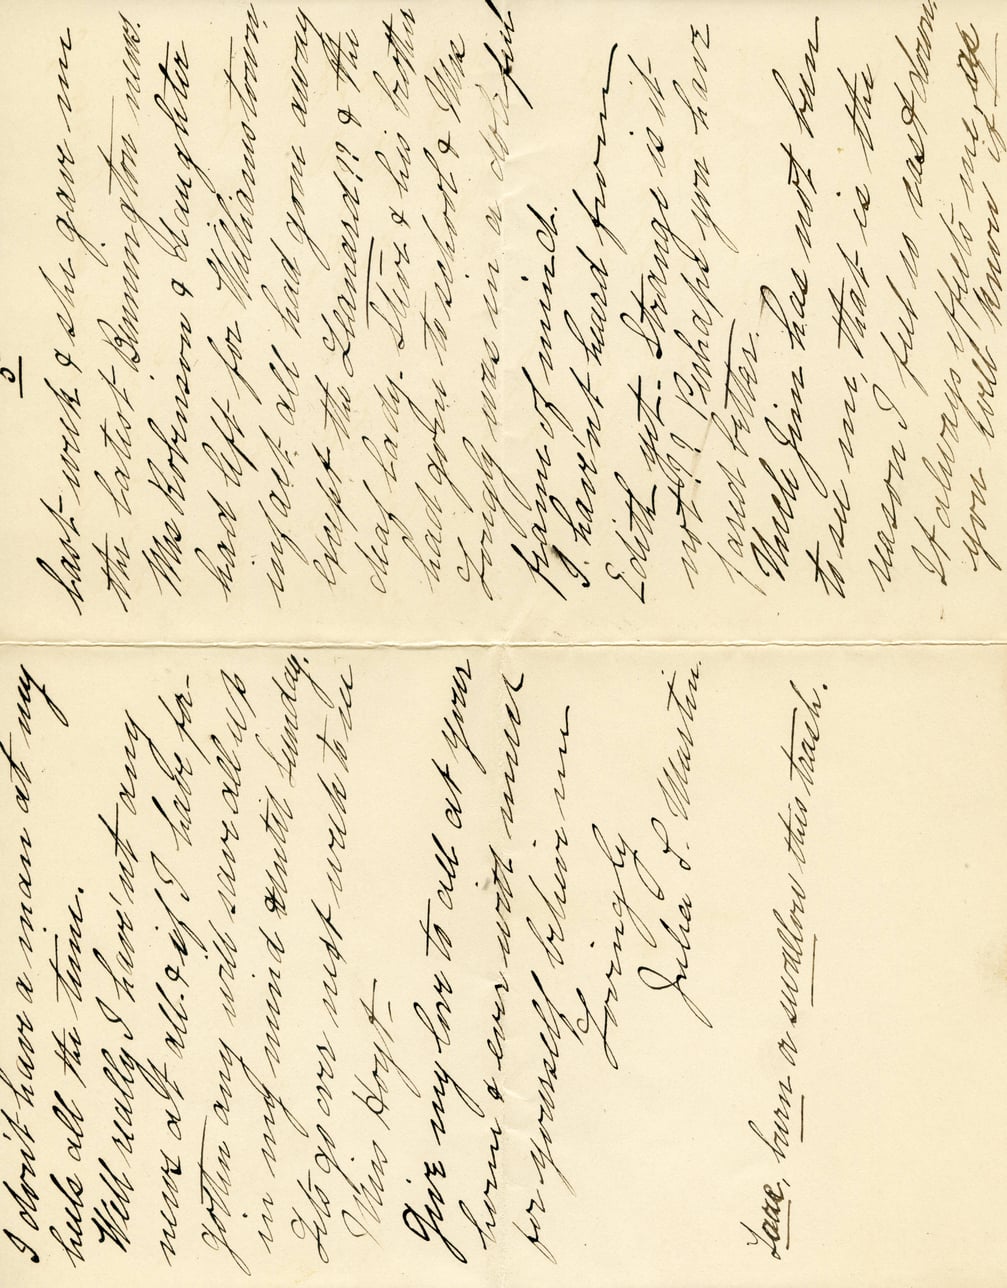 5
last week & she gave me
the latest Bennington news.
Mrs Robinson & daughter
had left for Williamstown,
in fact all had gone away
except the Leonards!! & the
deaf lady. Steve & his brother
had gone to school & Mrs
Longly was in a doleful
frame of mind.
I haven't heard from
Edith yet. Strange is it
not? Perhaps you have
fared better.
Uncle Jim has not been
to see me, that is the
reason I feel so cast down.
It always affects me, as
you well know if
I don't have a man at my
heels all the time.
Well really I have'nt any
news at all. & if I have for-
gotten any will save all up
in my mind until Sunday.
Lets go over next week to see
Miss Hoyt.
Give my love to all at your
home & ever with much
for yourself believe me
Lovingly
Julia L. Martin.
burn or swallow this trash.